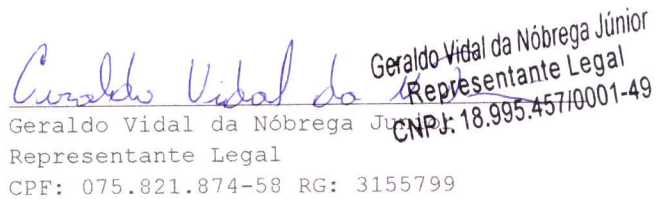 Geraldo Vidal da Nóbrega Júnior
Representante Legal
CNPJ: 18.995.457/0001-49
Geraldo Vidal da
Geraldo Vidal da Nóbrega Junior
Representante Legal
CPF: 075.821.874-58 RG: 3155799